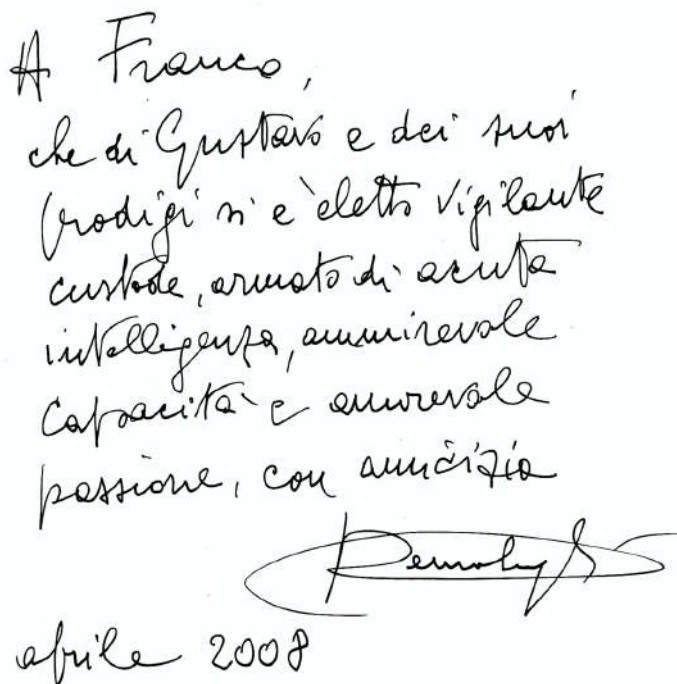 A Franco,
che di Gustavo e dei suoi
prodigi si è eletto vigilante
custode, armato di acuta
intelligenza, ammirevole
capacità e amorevole
passione, con amicizia
aprile 2008